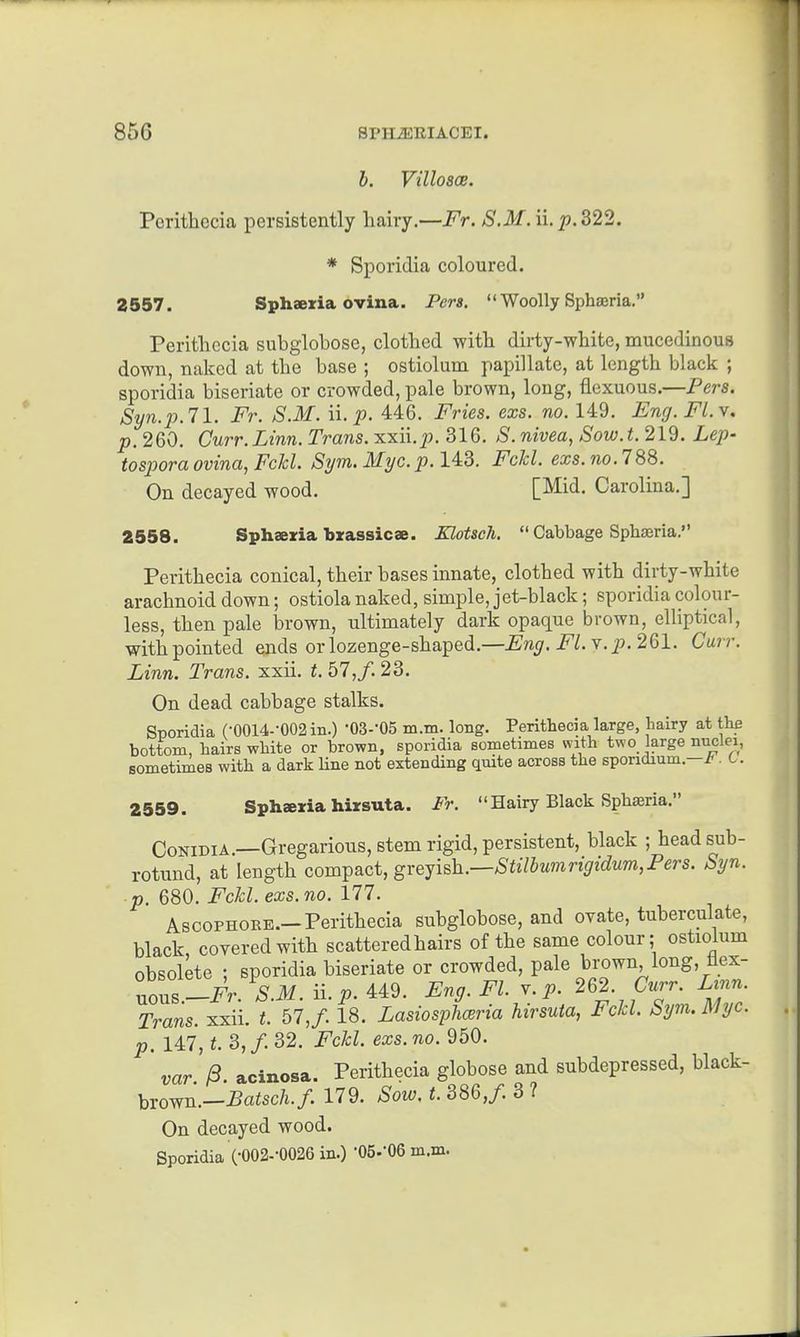 856 SPHÆRIACEI.
b. Villosæ.
Perithecia persistently hairy.—Fr. S.M. ii. p. 322.
* Sporidia coloured.
2557. Sphaeria ovina. Pers. "Woolly Sphæria."
Perithecia subglobose, clothed with dirty-white, mucedinous
down, naked at the base ; ostiolum papillate, at length black ;
sporidia biseriate or crowded, pale brown, long, flexuous.—Pers.
Syn. p. 71. Fr. S.M. ii. p. 446. Fries. exs. no. 149. Eng. Fl. v.
p. 260. Curr. Linn. Trans. xxii. p. 316. S. nivea, Sow. t. 219. Lep-
tospora ovina, Fckl. Sym. Myc. p. 143. Fckl. exs. no. 788.
On decayed wood. [Mid. Carolina.]
2558. Sphaeria brassicae. Klotsch. "Cabbage Sphæria."
Perithecia conical, their bases innate, clothed with dirty-white
arachnoid down ; ostiola naked, simple, jet-black ; sporidia colour-
less, then pale brown, ultimately dark opaque brown, elliptical,
with pointed ends or lozenge-shaped.—Eng. Fl. v. p. 261. Curr.
Linn. Trans. xxii. t. 57, f. 23.
On dead cabbage stalks.
Sporidia (·0014-·002 in.) ·03-·05 m.m. long. Perithecia large, hairy at the
bottom, hairs white or brown, sporidia sometimes with two large nuclei,
sometimes with a dark line not extending quite across the sporidium.—F. C.
2559. Sphaeria hirsuta. Fr. "Hairy Black Sphæria."
CONIDIA.—Gregarious, stem rigid, persistent, black ; head sub-
rotund, at length compact, greyish.—Stilbum rigidum, Pers. Syn.
p. 680. Fckl. exs. no. 177.
ASCOPHORE.—Perithecia subglobose, and ovate, tuberculate,
black, covered with scattered hairs of the same colour ; ostiolum
obsolete ; sporidia biseriate or crowded, pale brown, long, flex-
uous.—Fr. S.M. ii. p. 449. Eng. Fl. v. p. 262. Curr. Linn.
Trans. xxii. t. 57, f. 18. Lasiosphæria hirsuta, Fckl. Sym. Myc.
p. 147, t. 3, f. 32. Fckl. exs. no. 950.
var. β. acinosa. Perithecia globose and subdepressed, black-
brown.—Batsch. f. 179. Sow. t. 386, f. 3 ?
On decayed wood.
Sporidia (·002-·0026 in.) ·05-·06 m.m.